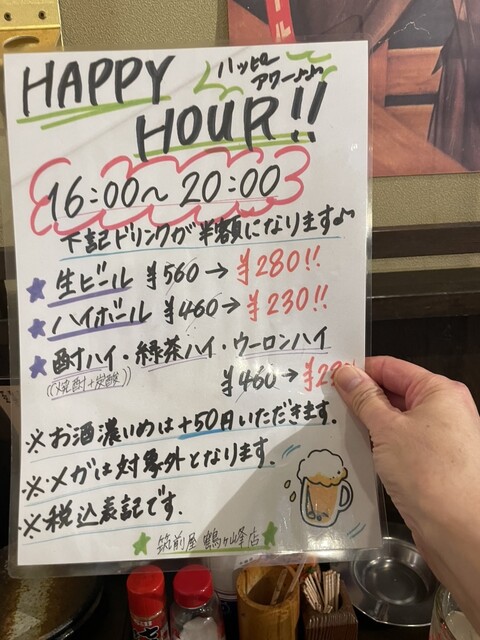 HAPPY
ハッピー
アワー♪♪
HOUR!!
16:00～20:00
下記ドリンクが半額になります♪
★生ビール ¥560→¥280!!
★ハイボール ¥460→¥230!!
★酎ハイ・緑茶ハイ・ウーロンハイ
((焼酎+炭酸))
¥460→¥23
※お酒濃いめは+50円いただきます.
※メガは対象外となります.
※税込表記です.
★筑前屋 鶴ヶ峰店★